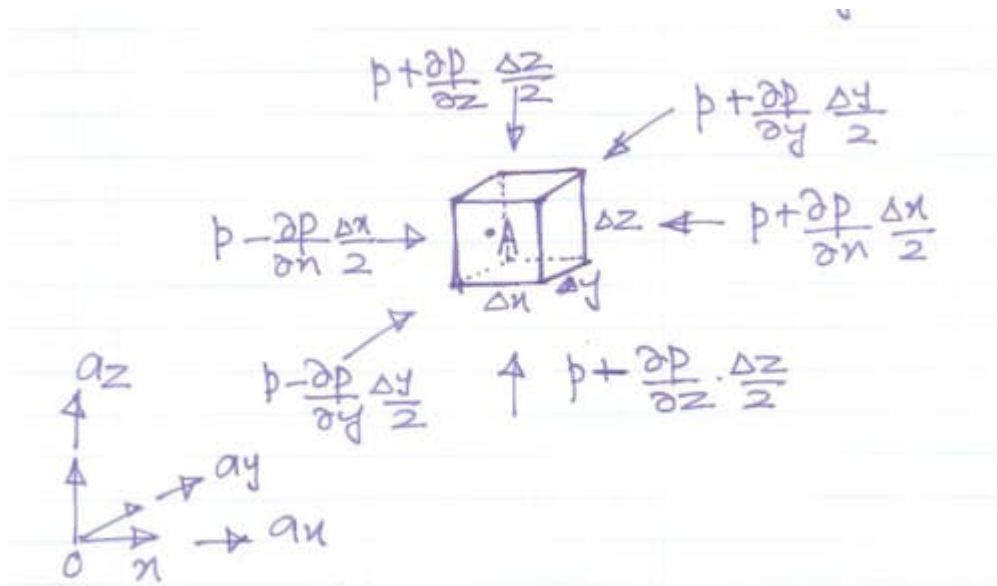 p+∂p/∂z Δz/2
p+∂p/∂y Δy/2
p-∂p/∂x Δx/2
A
Δz
p+∂p/∂x Δx/2
Δx
Δy
p-∂p/∂y Δy/2
p+∂p/∂z·Δz/2
az
ay
ax
0
x